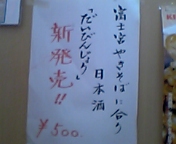 富士宮やきそばに合う
日本酒
「だいびんじょう」
新発売!!
¥500